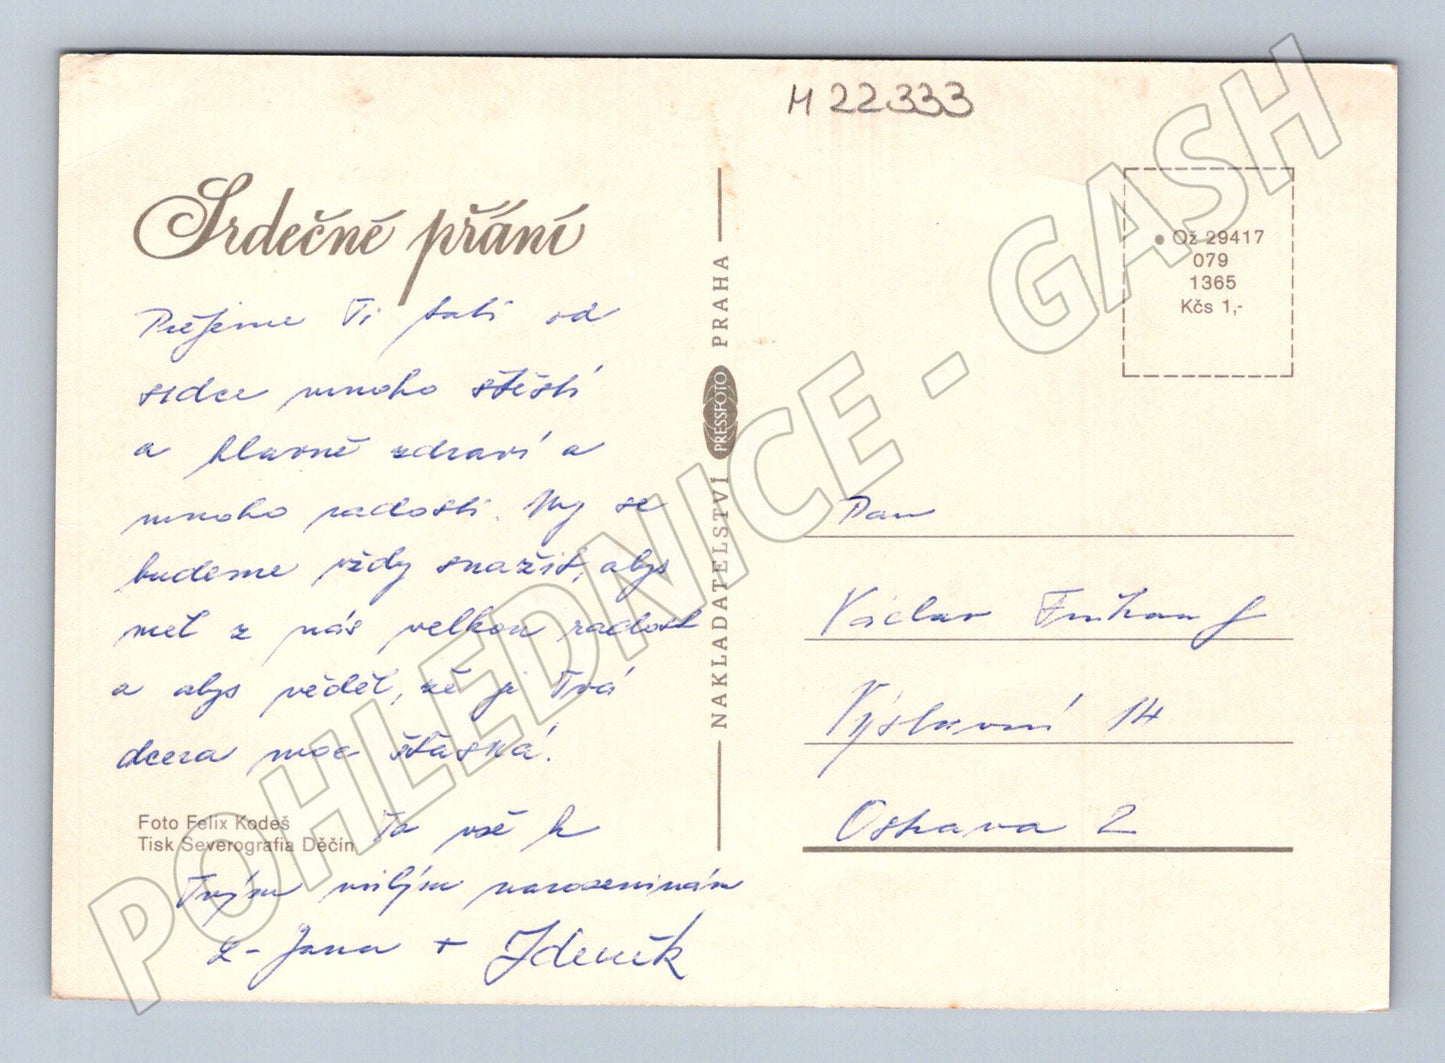 H 22333
Srdečné přání
Přejeme Ti tati od
srdce mnoho štěstí
a hlavně zdraví a
mnoho radosti. My se
budeme vždy snažit, abys
měl z nás velkou radost
a abys věděl, že je Tvá
dcera moc šťastná!
Foto Felix Kodeš
Tisk Severografia Děčín
To vše k
Tvým milým narozeninám
Jana + Zdeněk
NAKLADATELSTVÍ PRESSFOTO PRAHA
• Ož 29417
079
1365
Kčs 1,-
Pan
Václav
Výstavní 14
Ostrava 2
POHLEDNICE - GASH